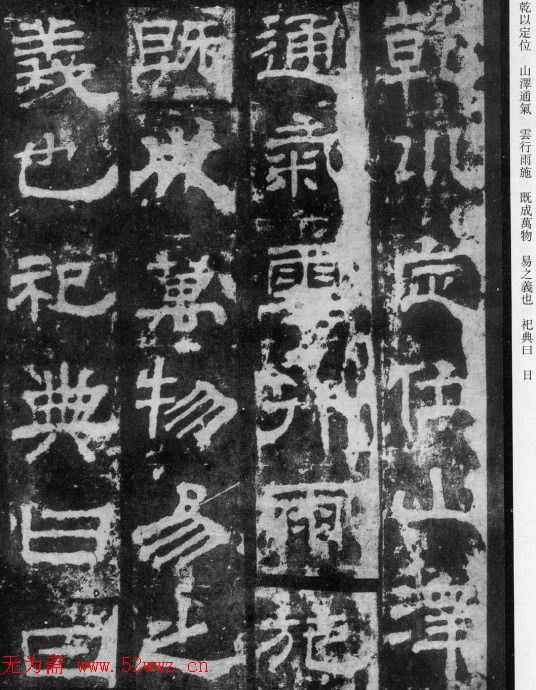 乾以定位　山澤通氣　雲行雨施　既成萬物　易之義也　祀典曰　日
乾以定位山澤
通氣雲行雨施
既成萬物易之
義也祀典曰日
无为斋 www.52wwz.cn